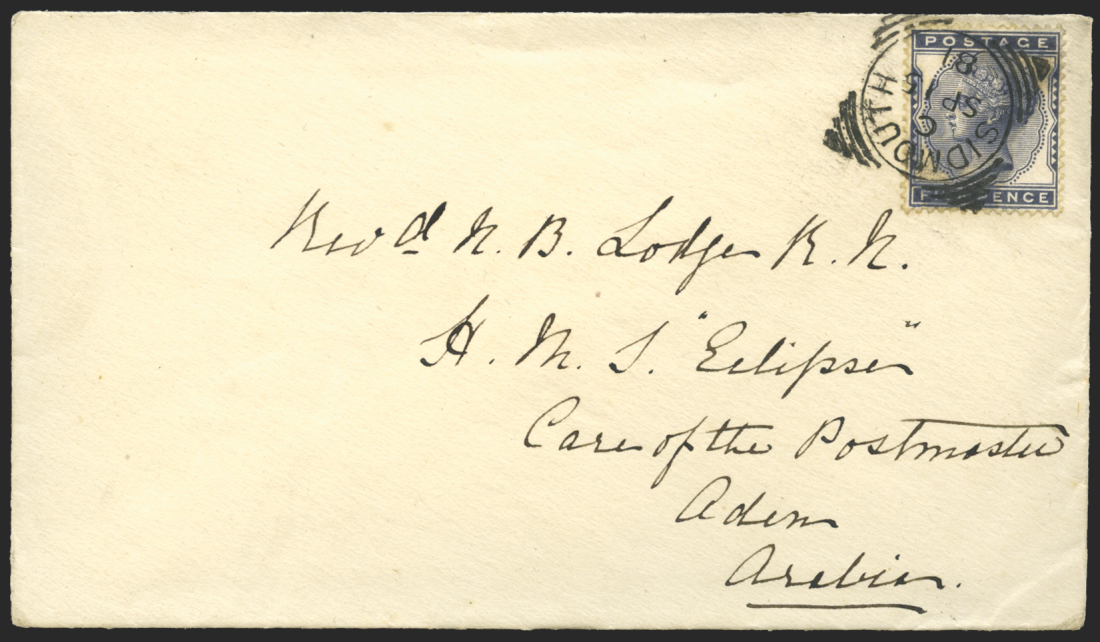 POSTAGE
SIDMOUTH
C
SP 15
81
FIVE PENCE
Revd N. B. Lodge R. N.
H. M. S. "Eclipse"
Care of the Postmaster
Aden
Arabia.